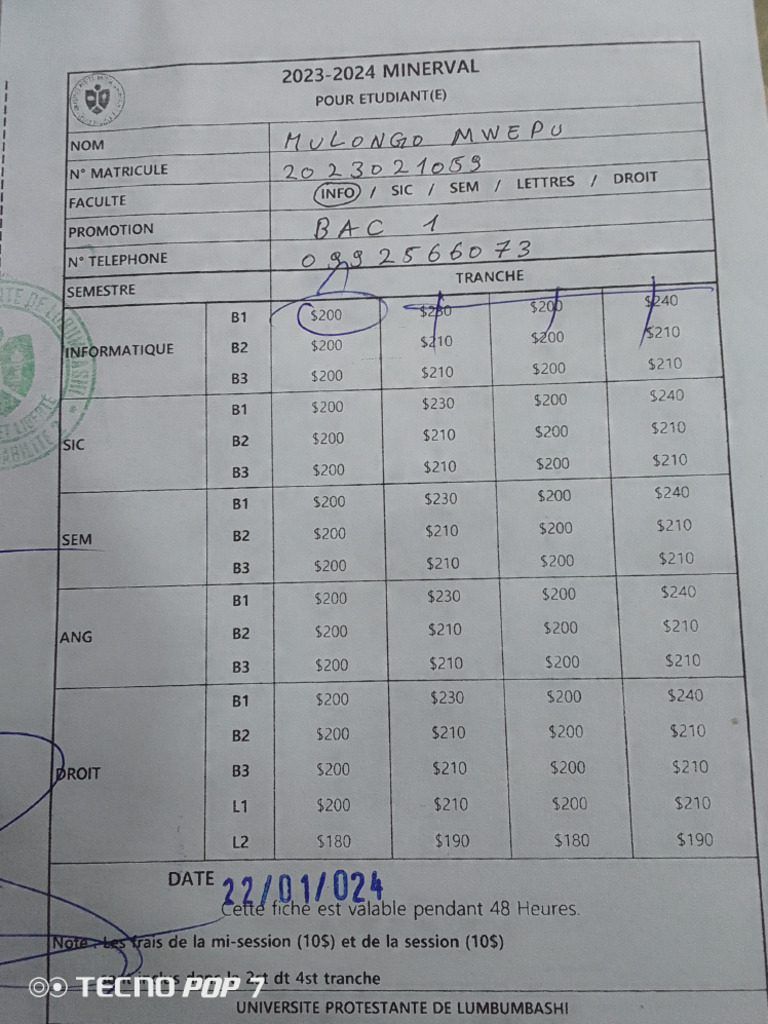 2023-2024 MINERVAL
POUR ETUDIANT(E)
NOM MULONGO MWEPU
N° MATRICULE 2023021059
FACULTE INFO / SIC / SEM / LETTRES / DROIT
PROMOTION BAC 1
N° TELEPHONE 0992566073
SEMESTRE TRANCHE
INFORMATIQUE
B1 $200 $230 $200 $240
B2 $200 $210 $200 $210
B3 $200 $210 $200 $210
SIC
B1 $200 $230 $200 $240
B2 $200 $210 $200 $210
B3 $200 $210 $200 $210
SEM
B1 $200 $230 $200 $240
B2 $200 $210 $200 $210
B3 $200 $210 $200 $210
ANG
B1 $200 $230 $200 $240
B2 $200 $210 $200 $210
B3 $200 $210 $200 $210
DROIT
B1 $200 $230 $200 $240
B2 $200 $210 $200 $210
B3 $200 $210 $200 $210
L1 $200 $210 $200 $210
L2 $180 $190 $180 $190
DATE 22/01/024
Cette fiche est valable pendant 48 Heures.
Note : Les frais de la mi-session (10$) et de la session (10$)
inclus dans la 2st dt 4st tranche
UNIVERSITE PROTESTANTE DE LUMBUMBASHI
TECNO POP 7